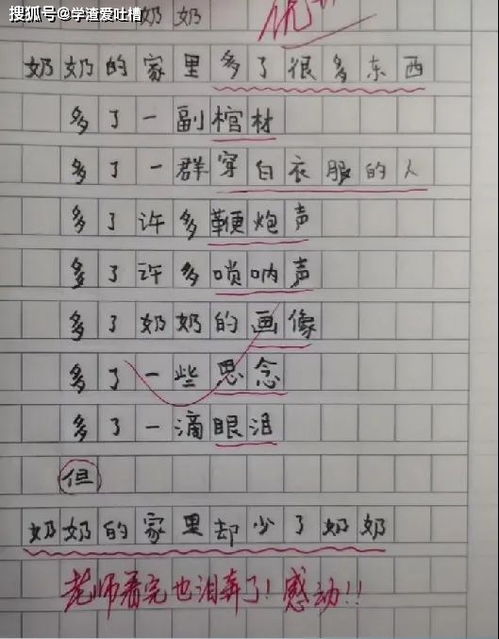 搜狐号@学渣爱吐槽
奶奶
优
奶奶的家里多了很多东西
多了一副棺材
多了一群穿白衣服的人
多了许多鞭炮声
多了许多唢呐声
多了奶奶的画像
多了一些思念
多了一滴眼泪
但
奶奶的家里却少了奶奶
老师看完也泪奔了!感动!!